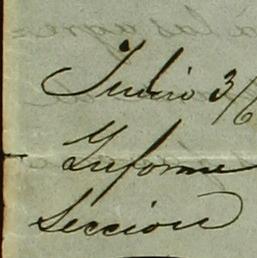 Junio 3/6
Informe
Seccion